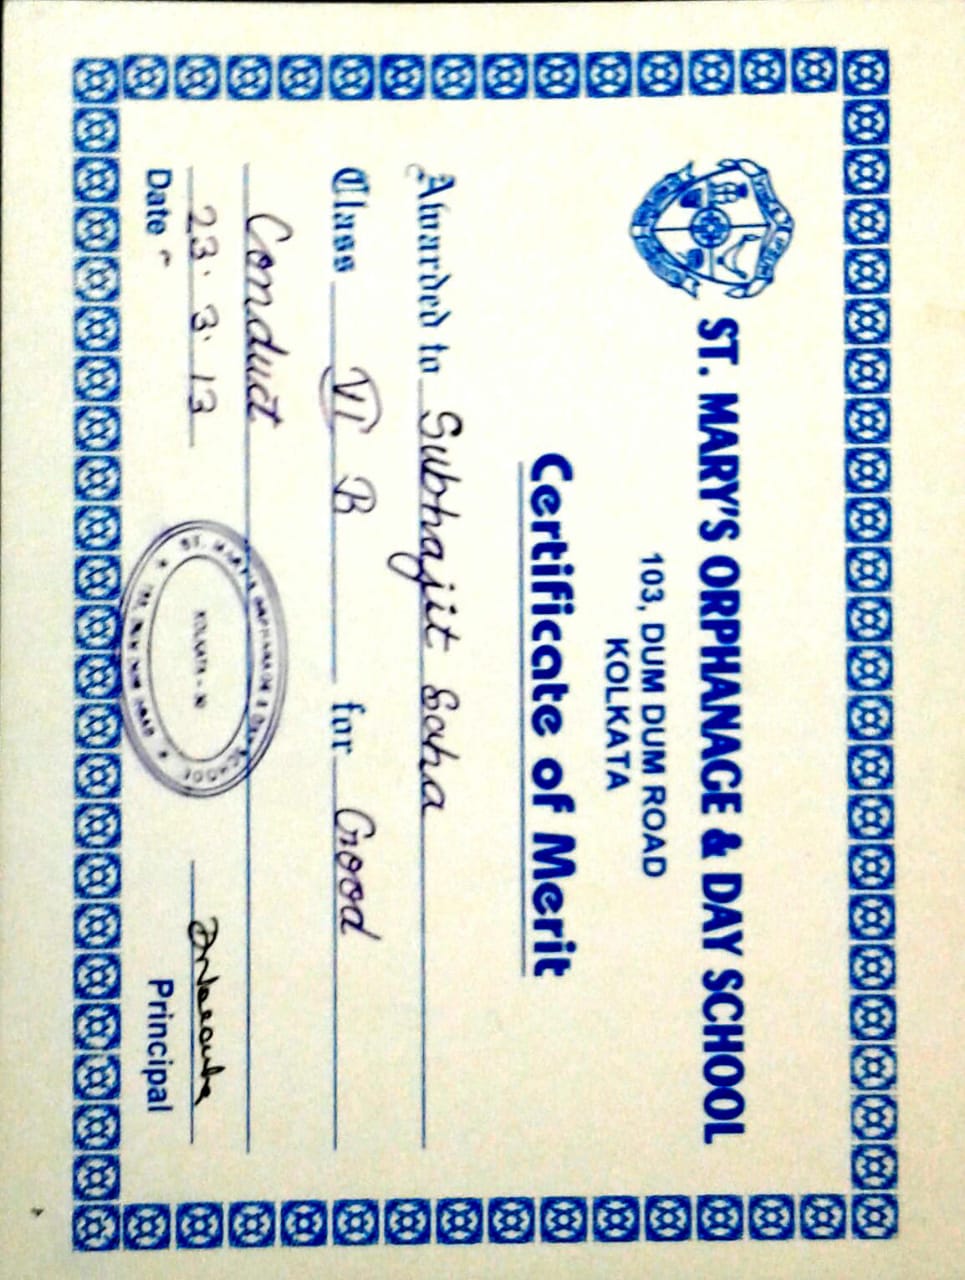 VINCE TE IPSUM
ST. MARY'S ORPHANAGE & DAY SCHOOL
103, DUM DUM ROAD
KOLKATA
Certificate of Merit
Awarded to Subhajit Saha
Class VI B for Good
Conduct
23. 3. 13
Date
Principal
ST. MARY'S ORPHANAGE & DAY SCHOOL
KOLKATA - 30
103, DUM DUM ROAD